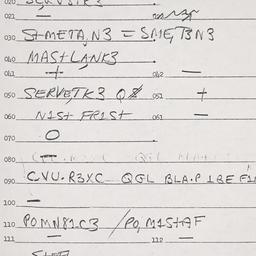 020
021 —
030 S+META,N3 = SME,T3N3
040 MASTLANK3
041 + 042 —
050 SERVETK3 051 +
060 N1St FR1St 061 —
070 O
080 —
090 CVU.R3XC QGL BLA.P 1BE F1
100 —
110 POMN81.C3 / PO,M1S+AF
111 — 112 —